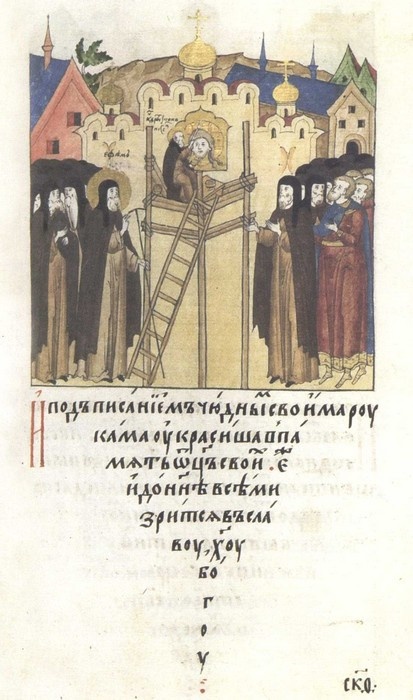 И подъписанїемъ чюдныⷨ своима роу
кама оукрасиша в па
мѧть ѿц҃ъ своиⷯ. є҆
и до нн҃ѣ всѣми
зритсѧ въ сла
воу, хо҃у
бо
г
о
у
: